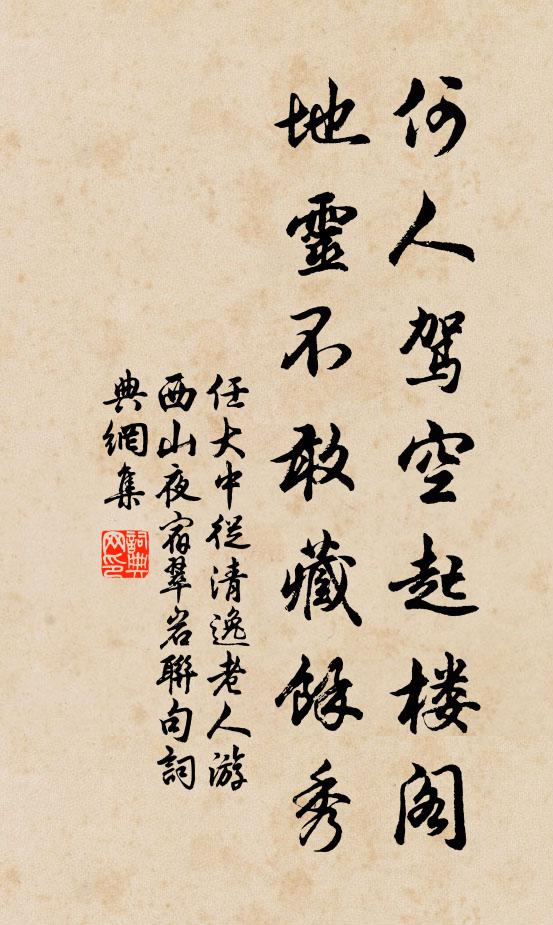 何人驾空起楼阁
地靈不敢藏餘秀
任大中從清逸老人游
西山夜宿翠岩聯句詞
典網集
詞典
网印